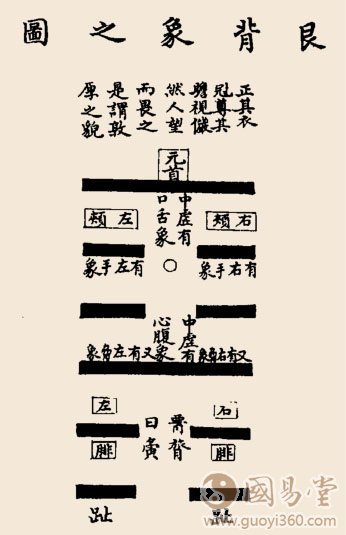 艮背象之圖
正其衣
冠尊其
瞻視儼
然人望
而畏之
是謂敦
原之貌
元首
中虛有
口舌象
右頰
左頰
有右手象
有左手象
中虛有
心腹象
又有右象
又有左象
右
腓
左
腓
曰夤
趾
趾
國易堂
www.guoyi360.com